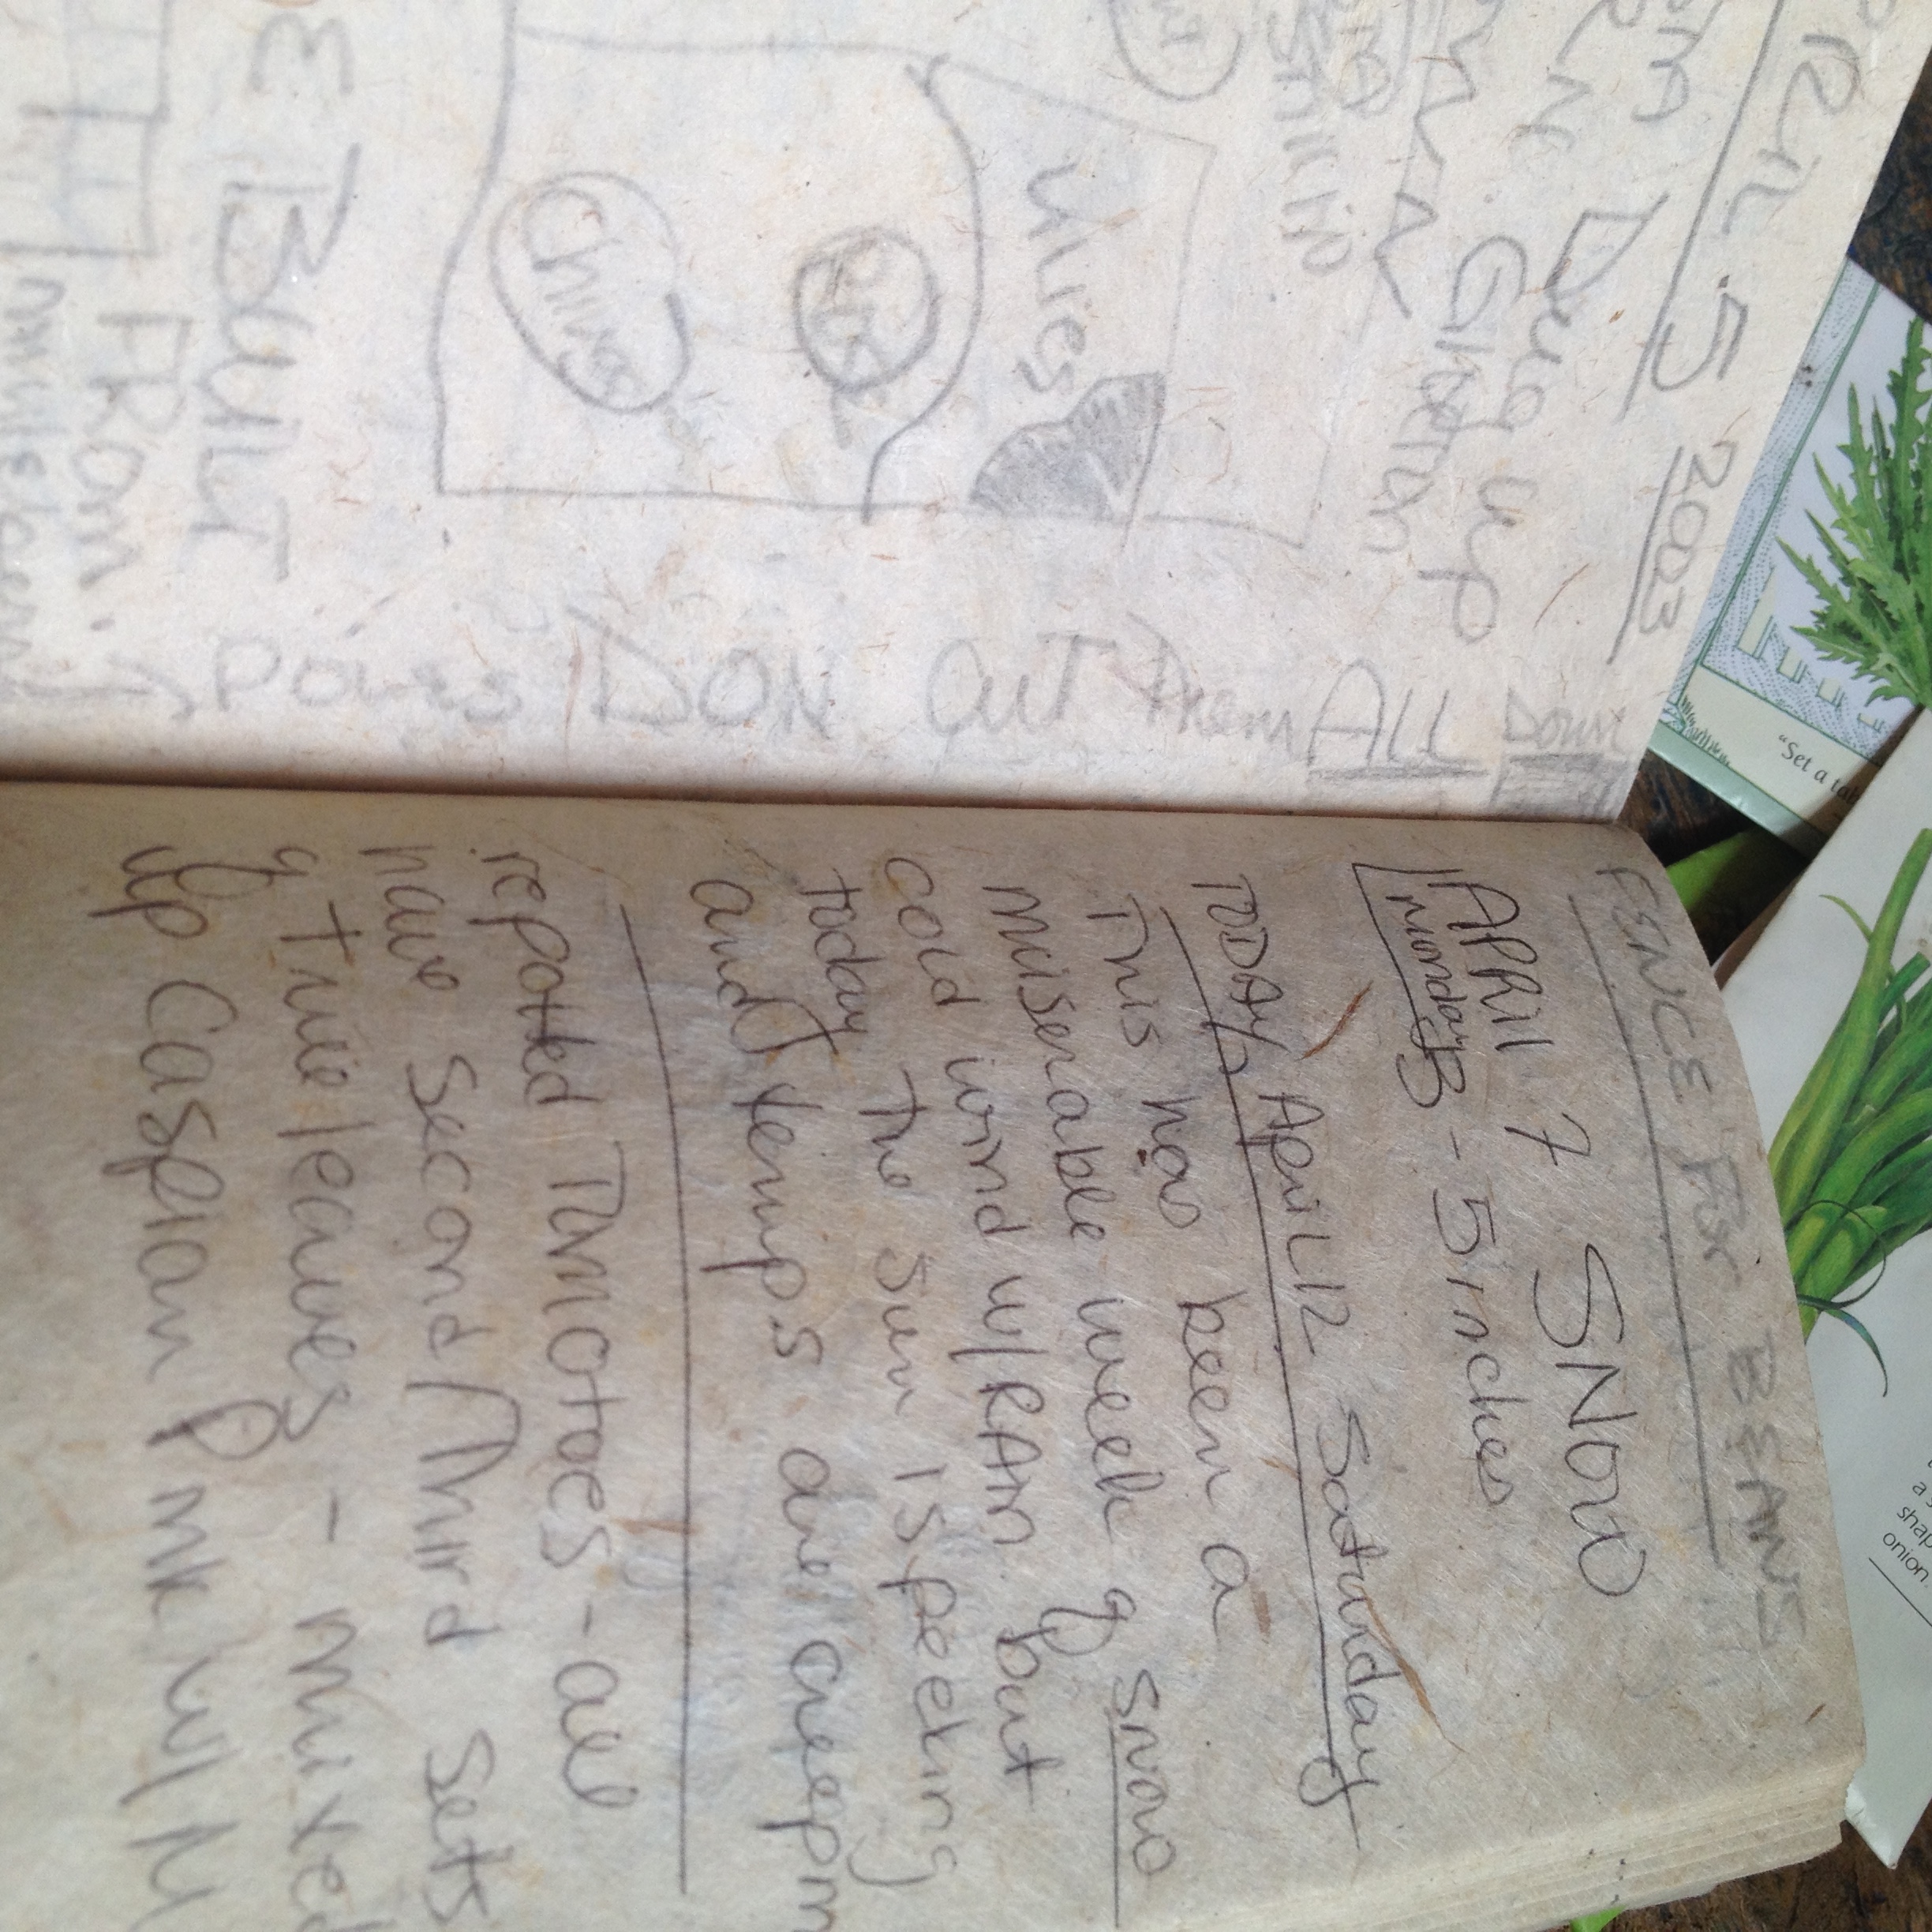 5 2003
Dug up
Lilies
Chives
BUILT
FROM
POLES DON CUT Them ALL Down
FENCE For BEANS
APRil 7 SNOW
monday 3-5 inches
TODAY, April 12 Saturday
This has been a
miserable week of snow
cold wind w/RAIN but
today the sun is peeking
and temps are creepin
repotted TMOtoes - all
have second/Third sets
of true leaves - mixed
up Caspian Pink w/
"Set a
a
shap
onion